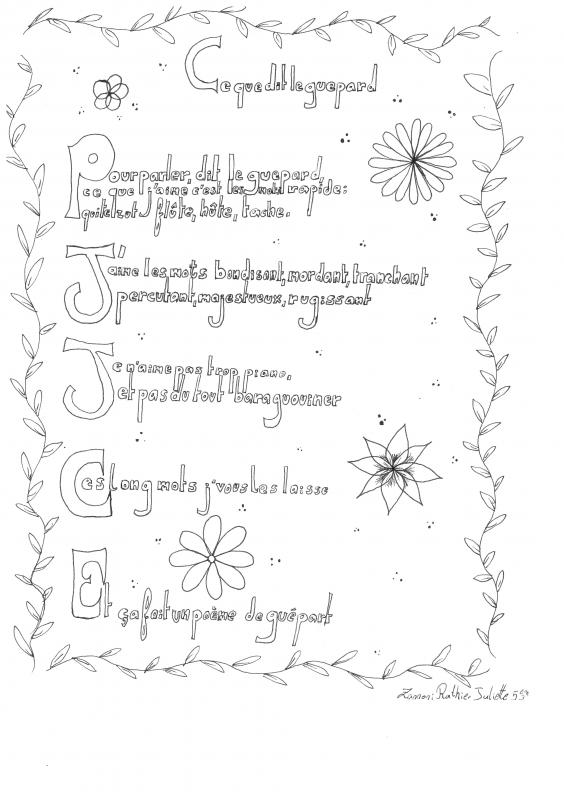 Ce que dit le guepard
Pour parler, dit le guepard,
ce que j'aime c'est les mots rapide:
quitelzut flûte, hûte, tache.
J'aime les mots bondisant, mordant, tranchant
percutant, majestueux, rugissant
Je n'aime pas trop piano,
et pas du tout baragouiner
Ces long mots j'vous les laisse
Et ça fait un poème de guépart
Zamoni Rathier Juliette 5